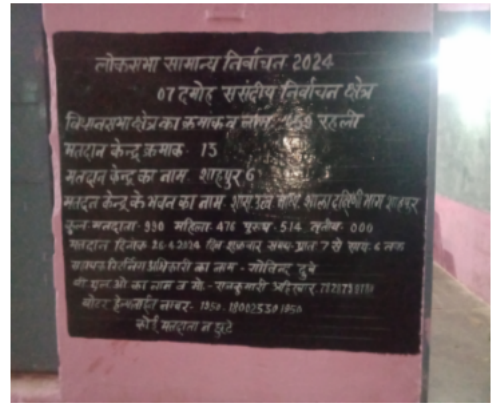 लोकसभा सामान्य निर्वाचन 2024
07 दमोह संसदीय निर्वाचन क्षेत्र
विधानसभा क्षेत्र का क्रमांक व नाम रहली
मतदान केन्द्र क्रमांक- 15
मतदान केन्द्र का नाम- शाहपुर 6
मतदान केन्द्र के भवन का नाम- शास. उच्च शाला दक्षिणी भाग शाहपुर
कुल मतदाता- 990 महिला- 476 पुरुष- 514 तृतीय- 000
मतदान दिनांक 26.4.2024 दिन शुक्रवार समय- प्रातः 7 से 6 तक
अधिकारी का नाम - गोविन्द दुबे
बी.एल.ओ का नाम व मो.- राजकुमारी अहिरवार
वोटर हेल्पलाईन नम्बर- 1950- 180023301950
कोई मतदाता न छूटे